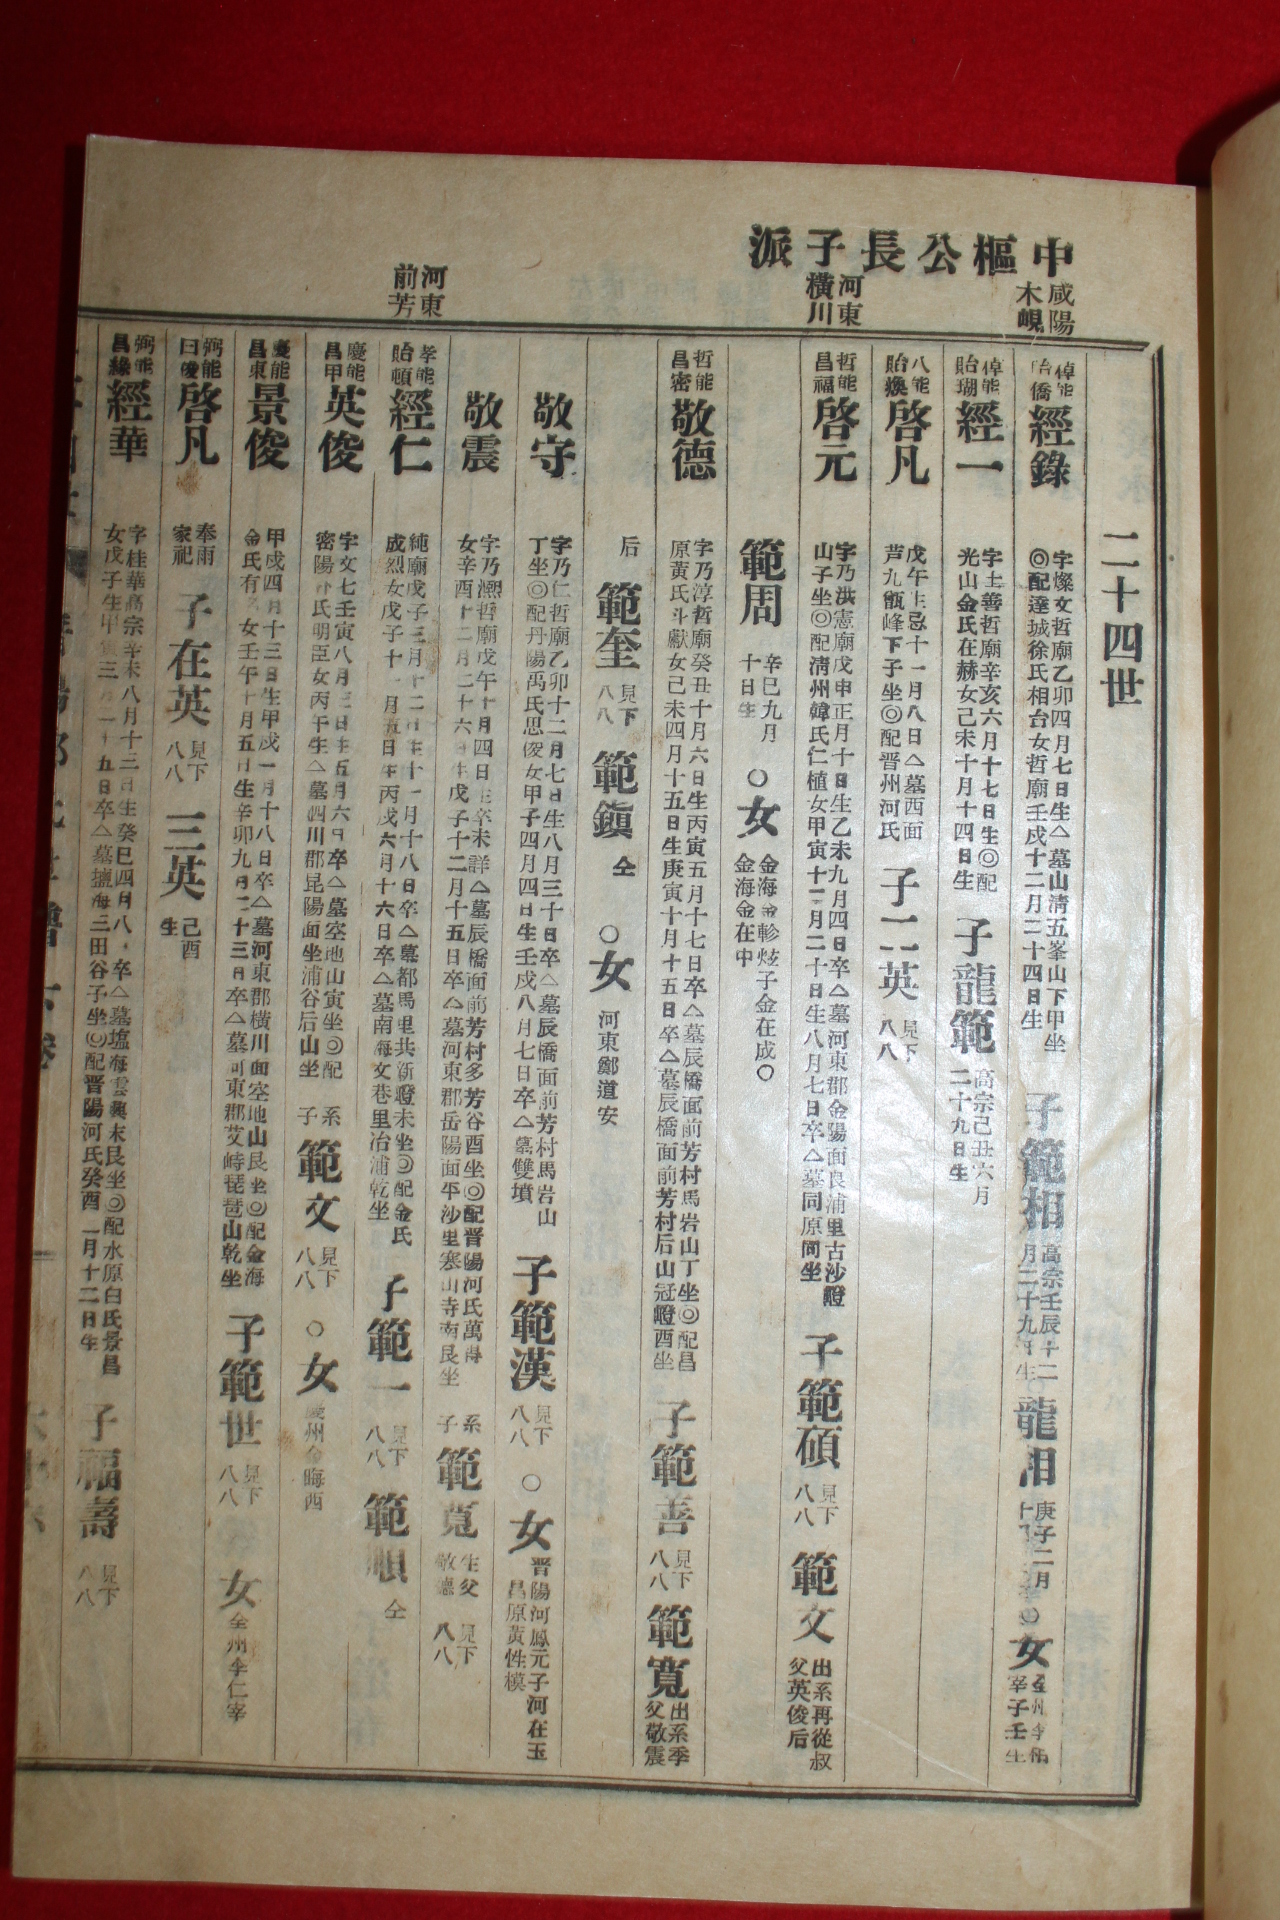 中樞公長子派
咸陽
木峴
河東
橫川
河東
前芳
二十四世
倬能
貽僑
經錄
字燦文哲廟乙卯四月七日生△墓山淸五峯山下甲坐
◎配達城徐氏相台女哲廟壬戌十二月二十四日生
子範相
高宗壬辰十二
月二十九日生
龍相
庚子二月
○女
倬能
貽瑚
經一
字士善哲廟辛亥六月十七日生◎配
光山金氏在赫女己未十月十四日生
子龍範
高宗己丑六月
二十九日生
八能
貽煥
啓凡
戊午生忌十一月八日△墓西面
芦九甑峰下子坐◎配晋州河氏
子二英
見下
八八
哲能
昌福
啓元
字乃洪憲廟戊申正月十日生乙未九月四日卒△墓河東郡金陽面良浦里古沙嶝
山子坐◎配淸州韓氏仁植女甲寅十二月二十日生八月七日卒△墓同原同坐
子範碩
見下
八八
範文
出系再從叔
父英俊后
範周
辛巳九月
十日生
○女
金海金軫炫子金在成○
金海金在中
哲能
昌密
敬德
字乃淳哲廟癸丑十月六日生丙寅五月十七日卒△墓辰橋面前芳村馬岩山丁坐◎配昌
原黃氏斗獻女己未四月十五日生庚寅十月十五日卒△墓辰橋面前芳村后山冠嶝酉坐
子範善
見下
八八
範寬
出系季
父敬震
后
範奎
見下
八八
範鎭
仝
○女
河東鄭道安
敬守
字乃仁哲廟乙卯十二月七日生八月三十日卒△墓辰橋面前芳村馬岩山
丁坐◎配丹陽禹氏思俊女甲子四月四日生壬戌八月七日卒△墓雙墳
子範漢
見下
八八
○女
晋陽河鳳元子河在玉
昌原黃性模
敬震
字乃瀷哲廟戊午十月四日生卒未詳△墓辰橋面前芳村多芳谷酉坐◎配晋陽河氏萬得
女辛酉十二月二十六日生戊子十二月十五日卒△墓河東郡岳陽面平沙里寒山寺南艮坐
系
子
範寬
生父
敬德
見下
八八
孝能
貽頓
經仁
純廟戊子三月十二日生十一月十八日卒△墓都馬里共新嶝未坐◎配金氏
成烈女戊子十一月五日生丙戌六月十六日卒△墓南海文巷里冶浦乾坐
子範一
見下
八八
範順
仝
慶能
昌甲
英俊
字文七壬寅八月三日生五月六日卒△墓空地山寅坐◎配
密陽朴氏明臣女丙午生△墓泗川郡昆陽面坐浦谷后山坐
系
子
範文
見下
八八
○女
慶州金晦酉
慶能
昌東
景俊
甲戌四月十三日生甲戌一月十八日卒△墓河東郡橫川面空地山艮坐◎配金海
金氏有 女壬午十月五日生辛卯九月二十三日卒△墓河東郡艾峙琵琶山乾坐
子範世
見下
八八
女
全州李仁宰
弼能
日俊
啓凡
奉兩
家祀
子在英
見下
八八
三英
己酉
生
弼能
昌緣
經華
字桂華高宗辛未八月十三日生癸巳四月八日卒△墓塩海雲興末艮坐◎配水原白氏景昌
女戊子生甲寅三月十五日卒△墓塩海三田谷子坐◎配晋陽河氏癸酉一月十二日生
子福壽
見下
八八